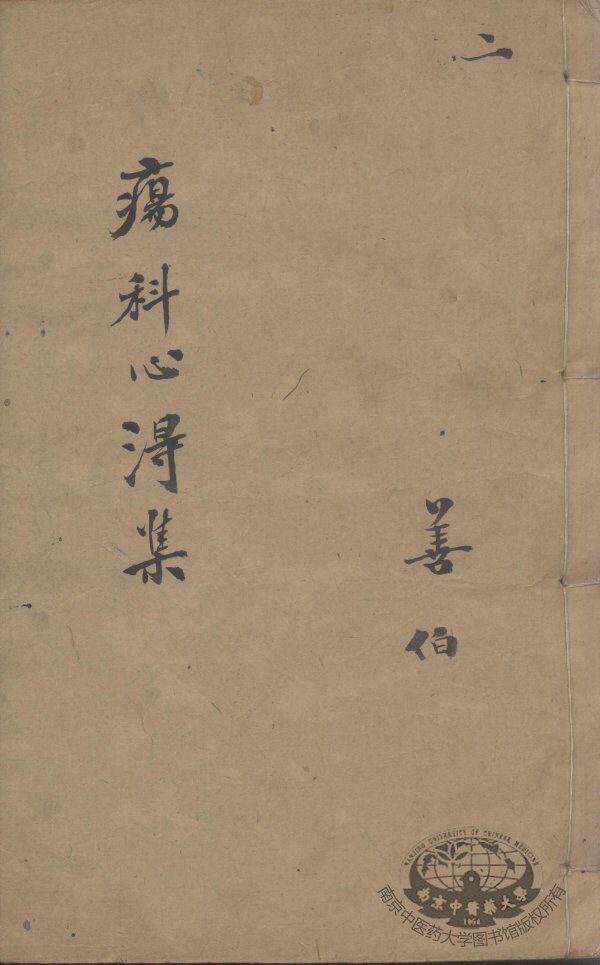 二
善伯
瘍科心得集
NANJING UNIVERSITY OF CHINESE MEDICINE
南京中醫藥大學
1954
南京中医药大学图书馆版权所有